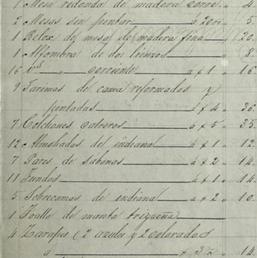 1 Mesa redonda de madera corre. 4
2 Mesas sin pintar á 20rs. 5
1 Relox de mesa de madera fina 20.
1 Alfombra de dos lienzos 8.
16 " " corriente á x 1 16
9 Tarimas de cama reformadas y
pintadas á x 4 36.
7 Colchones enteros á x 5 35.
12 Almohadas del indiana á x 1 12.
7 Pares de sabanas á x 2 14.
11 Fundas á x 1 11.
5 Sobrecamas de indiana á x 2 10.
1 Toalla de manta trigueña
4 Zarapes (2 azules y 2 colorados)
á x 3½ 14.